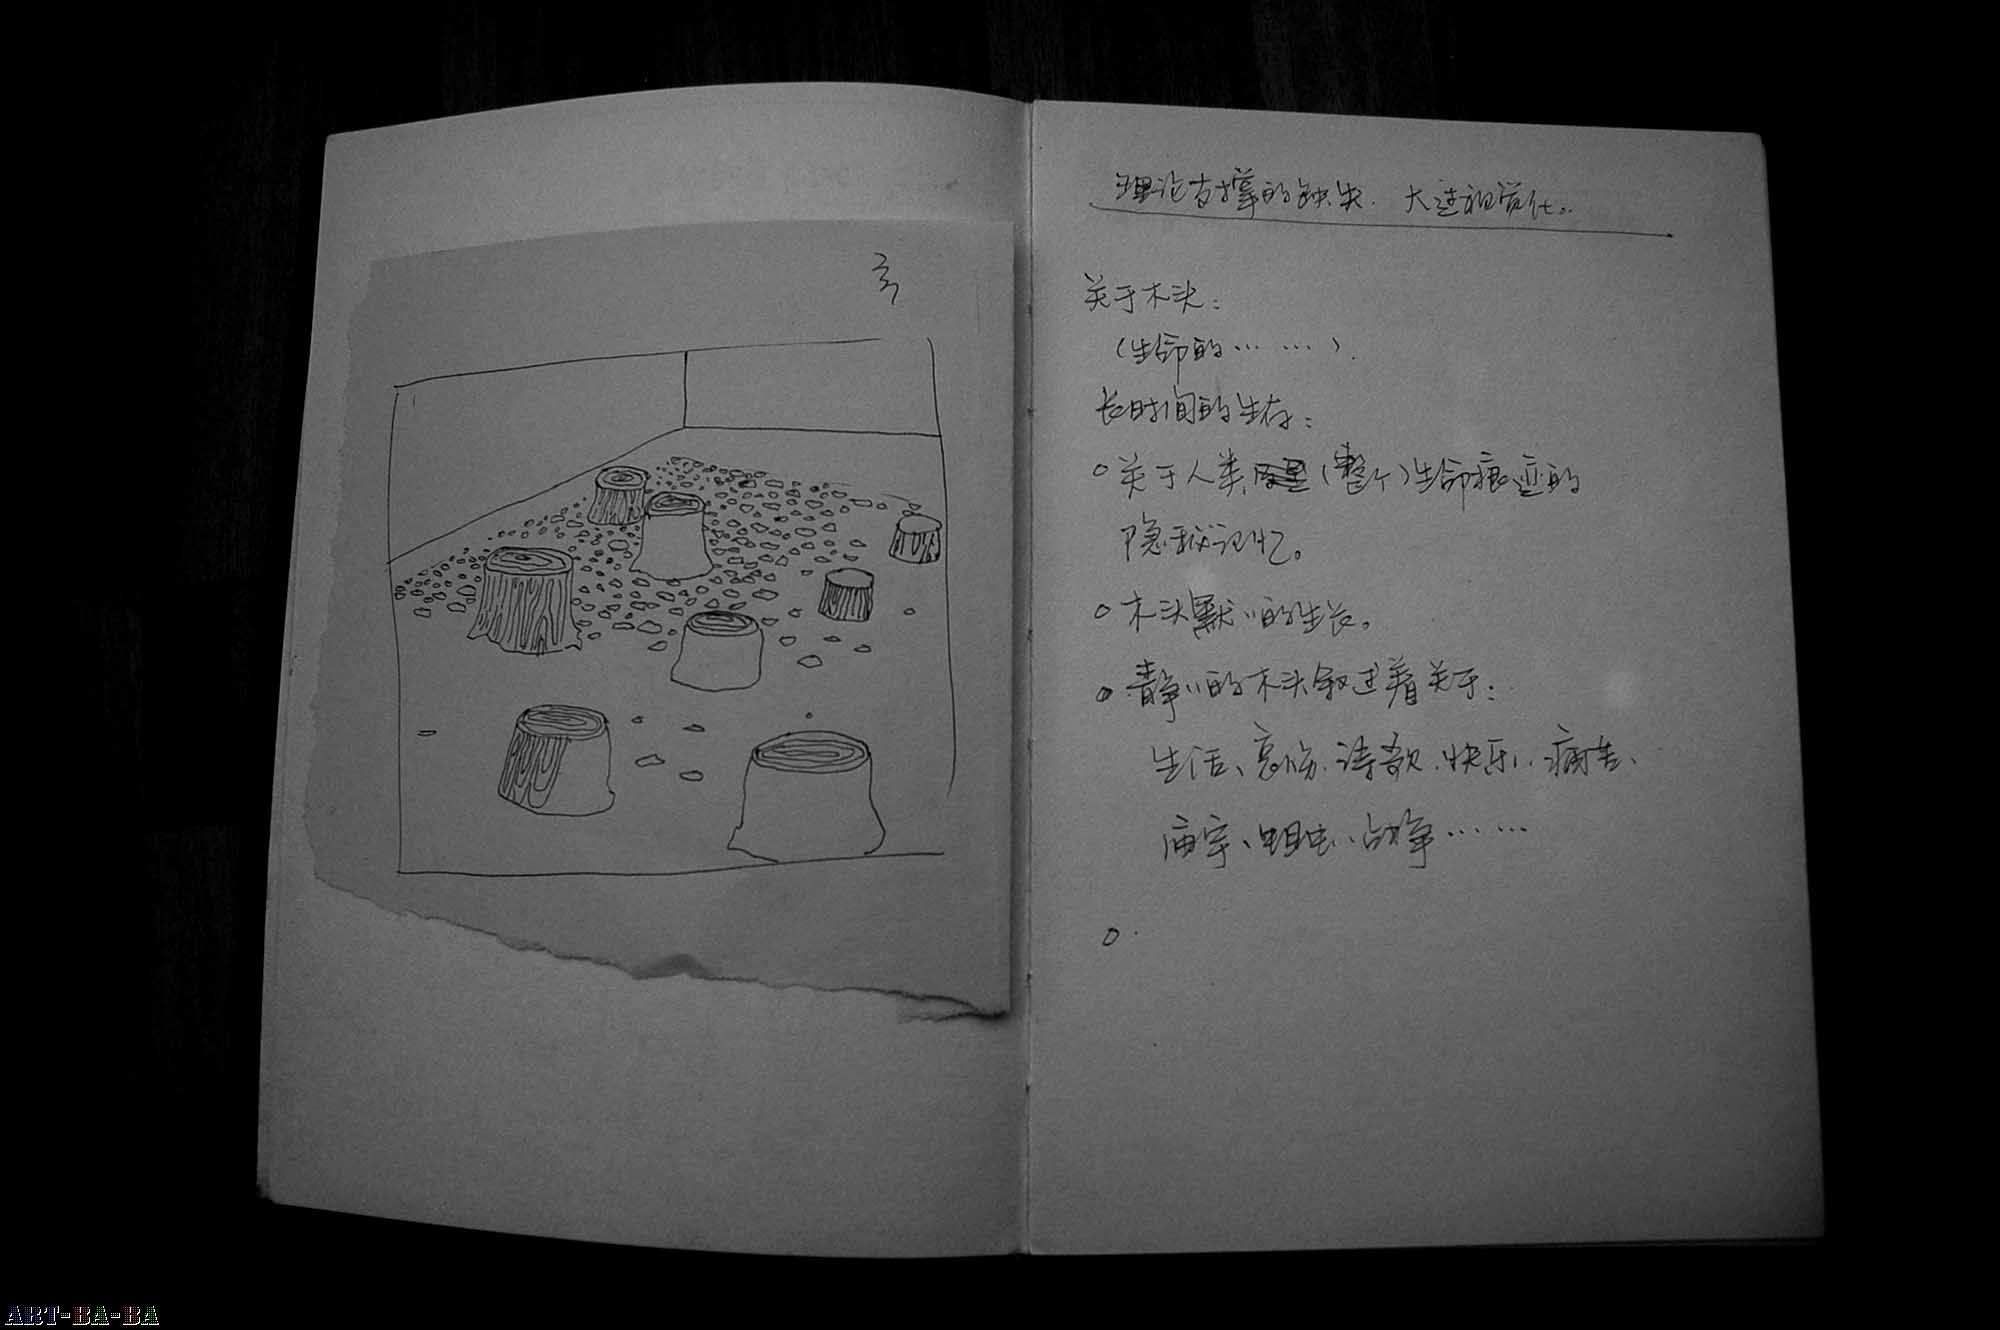 理论支撑的缺失. 大过视觉化。
关于木头：
（生命的……）.
长时间的生存：
○关于人类（整个）生命痕迹的
隐秘记忆。
○木头默〃的生长。
○静〃的木头叙述着关于：
生活、哀伤、诗歌、快乐、痛苦、
庙宇、蛆虫、战争……
○.
ART-BA-BA